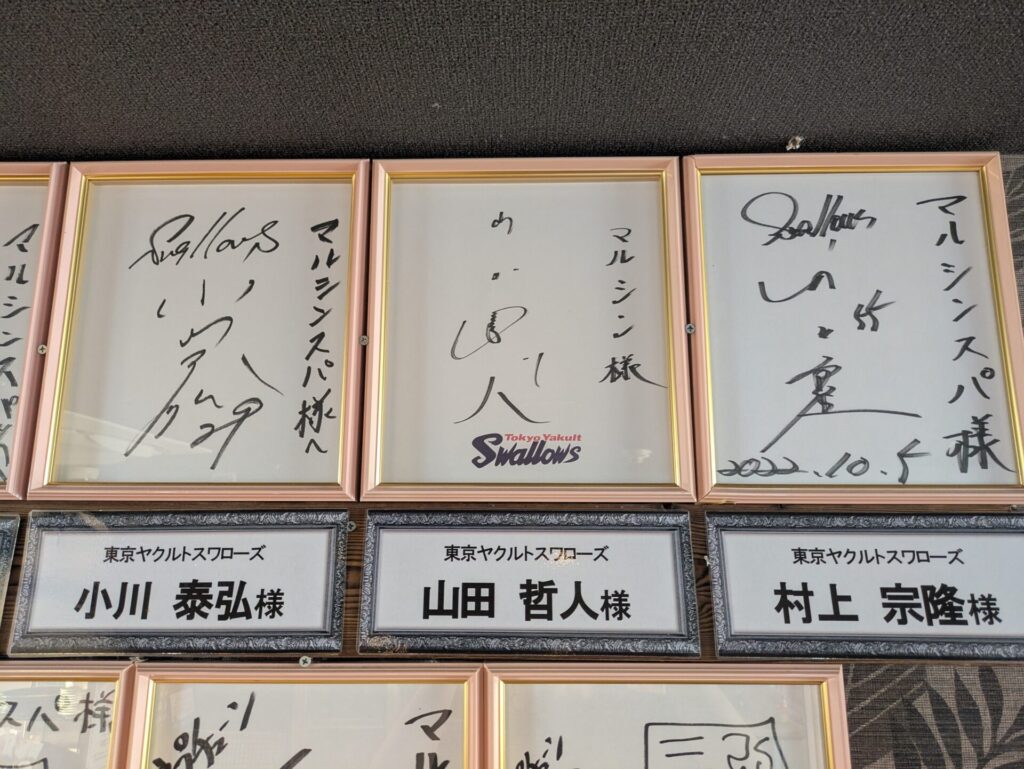 マルシンスパ様へ
Swallows
29
マルシン様
Tokyo Yakult
Swallows
マルシンスパ様
Swallows
55
2022.10.5
東京ヤクルトスワローズ
小川 泰弘様
東京ヤクルトスワローズ
山田 哲人様
東京ヤクルトスワローズ
村上 宗隆様
スパ様
マル